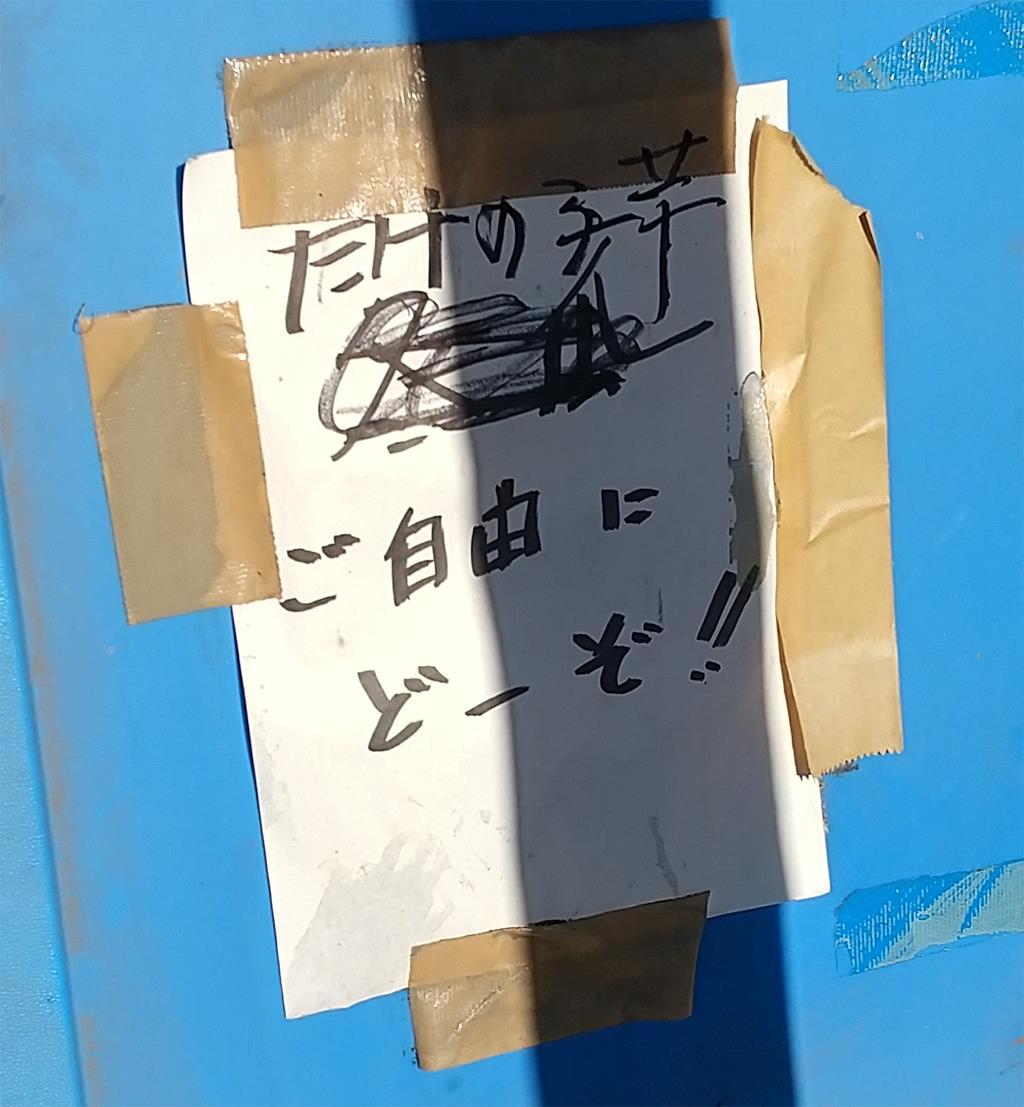 たけの子芋
ご自由に
どーぞ!!